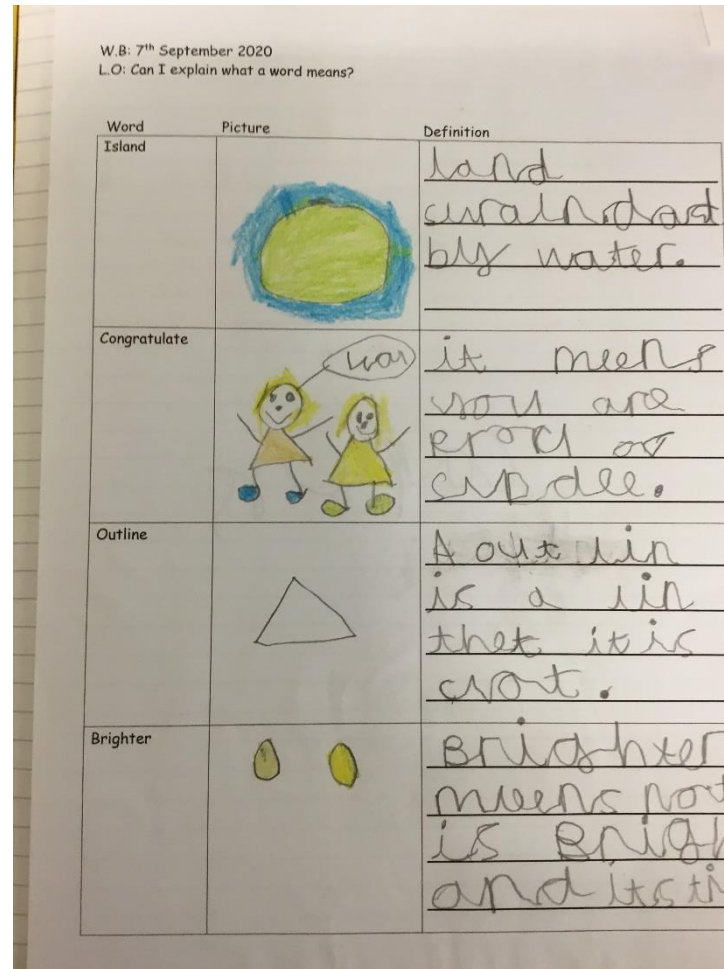 W.B: 7th September 2020
L.O: Can I explain what a word means?
Word Picture Definition
Island
land
by water.
Congratulate
it meens
you are
Outline
A out lin
is a lin
thet it is
Brighter
Brighter
meens
is Brigh
and its